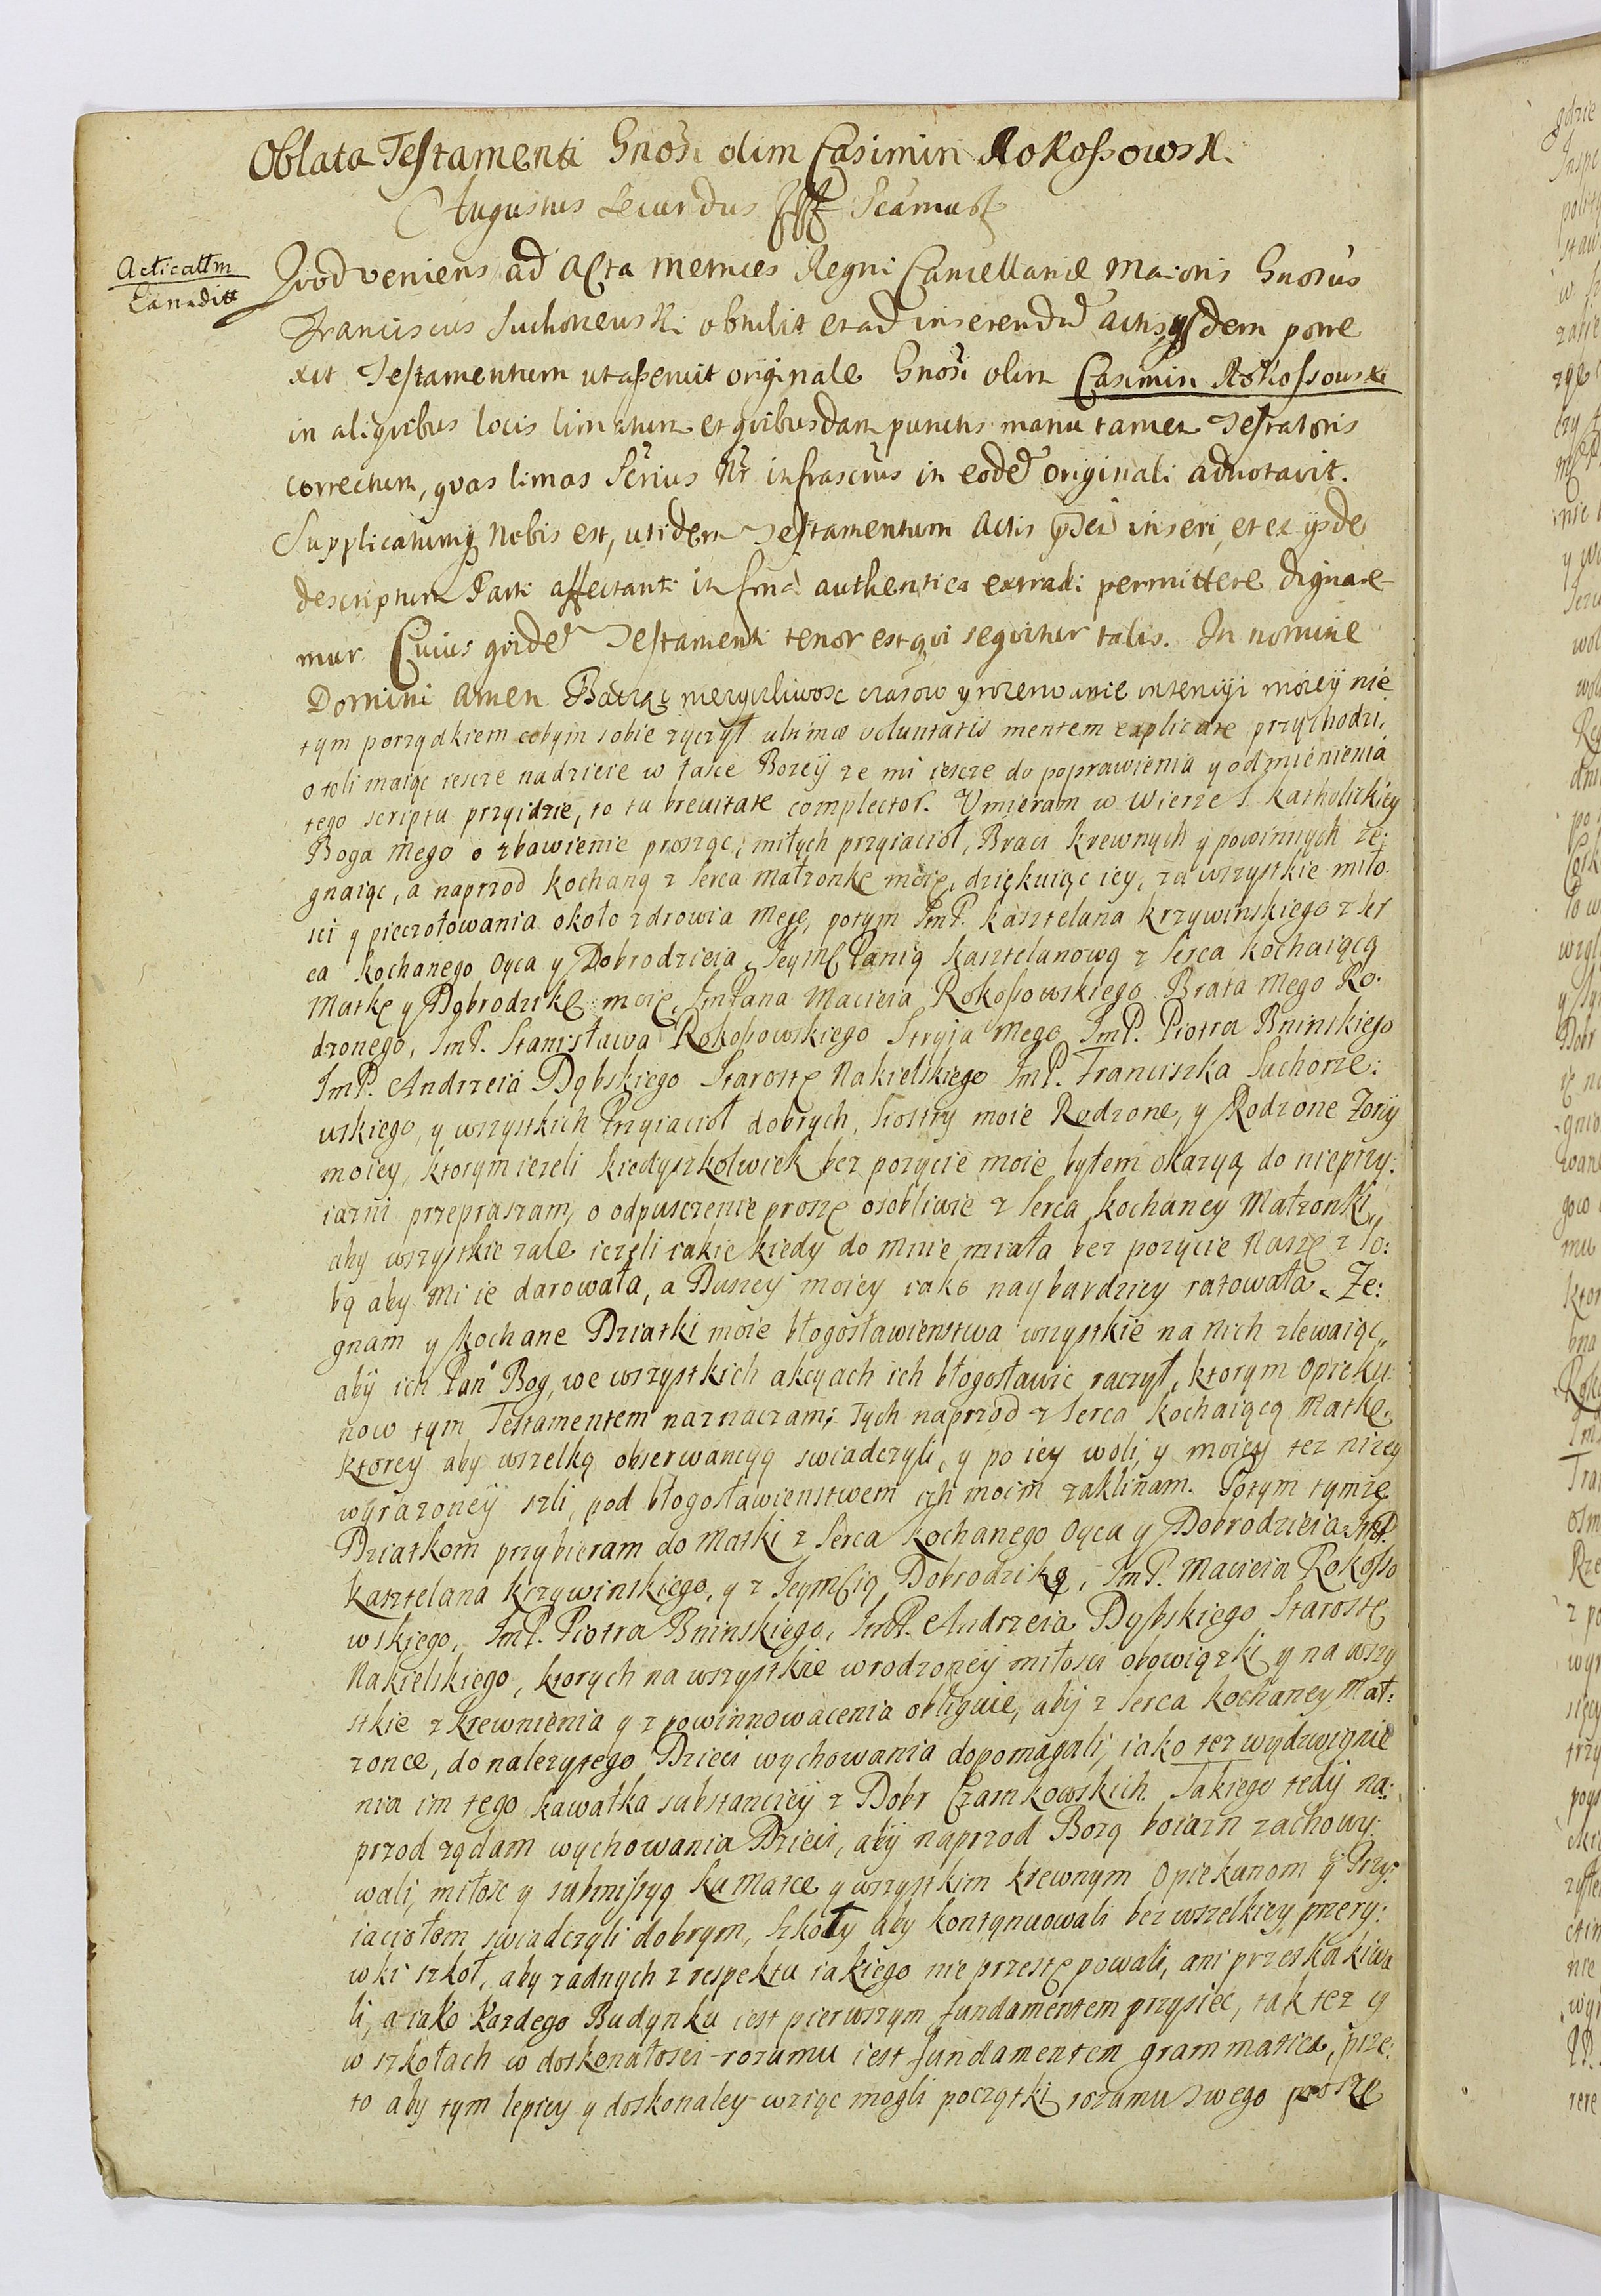 Oblata Testamenti Gnosi olim Casimiri Rokossowsk.
Augustus Secundus
Acticattm
Qvod veniens ad Acta Metrices Regni Cancellariæ Maioris Gnosus
Franciscus Suchorzewski obtulit et ad inserendũ Actis ysdem porre
xit Testamentum ut asseruit originale Gnosi olim Casimiri Rokossowski
in aliqvibus locis limatum et qvibusdam punctis manu tamen Testatoris
correctum, qvas limas Serius Nr infrascrus in eodẽ originali adnotavit.
Supplicatumq nobis est, ut idem Testamentum Actis inseri, et ex ysdẽ
descriptum Parti affectanti in authentica extradi permittere dignare
mur Cuius qvidẽ Testamenti tenor est qvi seqvitur talis. In nomine
Domini Amen. Patrząc nierychliwosc czasow y rozerwanie intencyi moiey nie
tym porządkiem cobym sobie zyczył ultimæ voluntatis mentem explicare przychodzi,
otoli maiąc iescze nadzieie w łasce Bozey ze mi iescze do poprawienia y odmięnienia
tego scriptu przyidzie, to tu brevitate complector. Umieram w Wierze S. Katholickiey
Boga mego o zbawienie prosząc, miłych przyiacioł, Braci krewnych y powinnych ze:
gnaiąc, a naprzod kochaną z serca Małzonkę moię, dziękuiąc iey, za wszystkie miło:
sci y pieczołowania około zdrowia mego, potym ImP. kasztelana krzywinskiego z ser
ca kochanego Oyca y Dobrodzieia, Ieymć Panią kasztelanową z serca kochaiącą
Matkę y Dobrodzikę moię, ImPana Macieia Rokossowskiego Brata mego Ro:
dzonego, ImP. Stanisława Rokossowskiego Stryja mego ImP. Piotra Bninskiego
ImP. Andrzeia Dąbskiego Starostę Nakielskiego ImP. Franciszka Suchorze:
wskiego, y wszystkich Przyiacioł dobrych, siostry moie Rodzone, y Rodzone Zony
moiey, ktorym iezeli kiedyszkolwiek bez pozycie moie byłem okazyą do nieprzy:
iazni przepraszam, o odpusczenie proszę osobliwie z serca kochaney Małzonki,
aby wszystkie zale iezeli iakie kiedy do mnie miała bez pozycie nasze z so:
bą aby mi ie darowała, a Duszey moiey iako naybardziey ratowała. Ze:
gnam y kochane Dziatki moie błogosławienstwa wszystkie na nich zlewaiąc,
aby ich Pan Bog, we wszystkich akcyach ich błogosławic raczył, ktorym Opieku:
now tym Testamentem naznaczam; Tych naprzod z serca kochaiącą Matkę,
ktorey aby wszelką obserwancyą swiadczyli, y po iey woli, y moiey tez nizey
wyrazoney szli, pod błogosławienstwem ich moim zaklinam. Potym tymze
Dziatkom przybieram do Matki z serca kochanego Oyca y Dobrodzieia ImP.
kasztelana krzywinskiego, y z Ieymcią Dobrodziką, ImP. Macieia Rokosso
wskiego, ImP. Piotra Bninskiego, ImP. Andrzeia Dąbskiego Starostę
Nakielskiego, ktorych na wszystkie wrodzoney miłosci obowiązki y na wszy
stkie zkrewnienia y zpowinnowacenia obliguię, aby z serca kochaney Mał:
zonce, do nalezytego Dzieci wychowania dopomagali, iako tez wydzwignie
nia im tego kawałka substanciey z Dobr Czarnkowskich. Takiego tedy na:
przod ządam wychowania Dzieci, aby naprzod Bozą boiazn zachowy:
wali, miłosc y submissyą ku Matce y wszystkim krewnym Opiekunom y Przy:
iaciołom swiadczyli dobrym, Szkoły aby kontynuowali bez wszelkiey przery:
wki szkoł, aby zadnych z respektu iakiego nie przestępowali, ani przeskakiwa
li, a iako kazdego Budynku iest pierwszym fundamentem przysiec, tak tez y
w szkołach w doskonałosci rozumu iest fundamentem grammatica, prze:
to aby tym lepiey y doskonaley wziąc mogli początki rozumu swego proszę